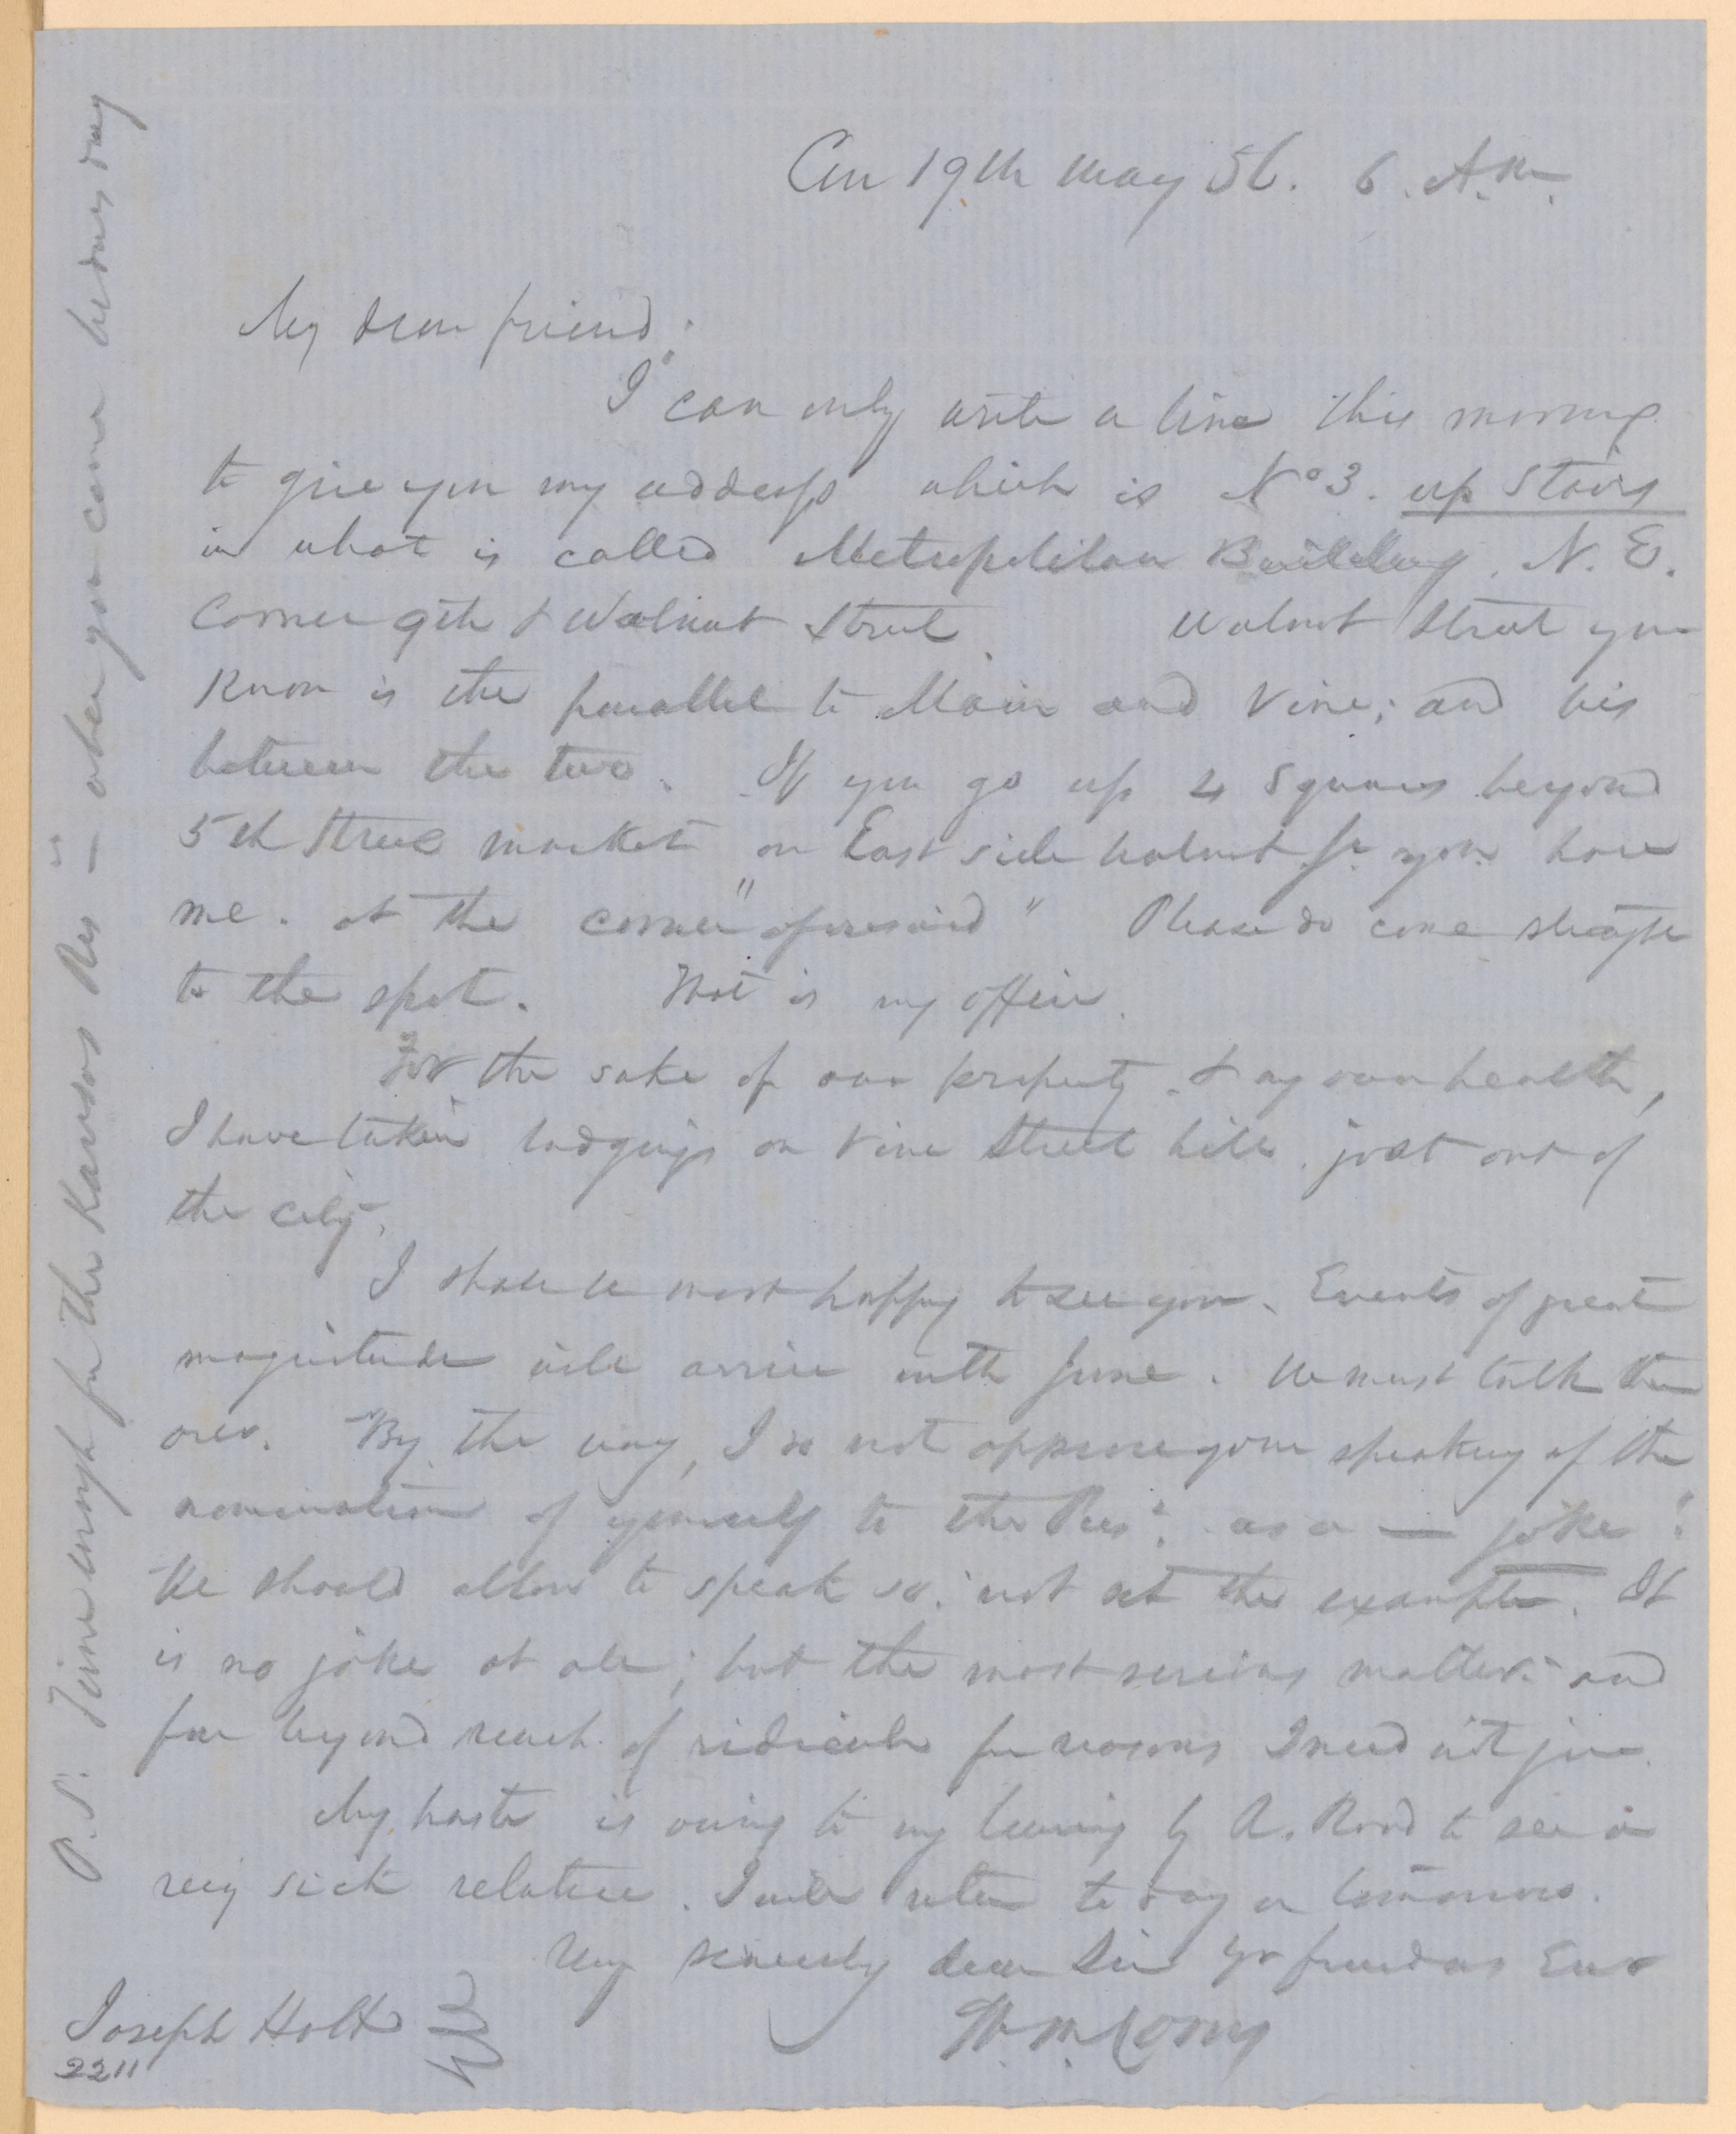 Cin 19th May 56. 6. A.M.
My dear friend;
I can only write a line this morning
to give you my address which is No 3. up Stairs
in what is called Metropolitan Building. N. E.
Corner 9th & Walnut Street. Walnut Street you
Know is the parallel to Main and Vine; and lies
between the two. If you go up 4 Squares beyond
5th Street market on East side Walnut St. you have
me. at the corner "aforesaid" Please do come straight
to the spot. That is my office.
For the sake of our property & my own health,
I have taken lodgings on Vine Street hill. just out of
the city.
I shall be most happy to see you. Events of great
magnitude will arrive with June. We must talk them
over. By the way, I do not approve your speaking of the
nomination of yourself to the Pres: as a — joke"
We should allow to speak so: not set the example. It
is no joke at all; but the most serious matter: and
far beyond reach of ridicule for reasons I need not give.
My haste is owing to my leaving by R. Road to see a
very sick relative. I will return to day or tomorrow.
Very sincerely dear Sir Yr friend as Ever
W. M. Corry
Joseph Holt
2211
P.S. Time enough for the Kansas Res — when you come wednesday